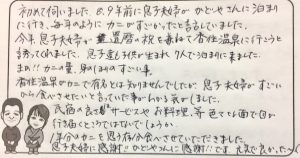 初めて伺いました。8、9年前に息子夫婦がかどやさんに泊まり
に行き、毎年のように カニがすごかったと言っていました。
今年、息子夫婦が 還暦の祝を兼ねて香住温泉に行こうと
誘ってくれました。息子達も子供が生まれ 7人で泊まりに来ました。
まあ!!カニの量、身のしまりのすごい事。
香住がカニで有名とは知りませんでしたが、息子夫婦がすごい
から食べさせたいと言っていた事がわかる気がしました。
民宿の良さ サービスや お料理、等 色々な面で
行き届くところではないでしょうか
1年分のカニを思う存分食べさせていただきました。
息子夫婦に感謝!! かどやさんに感謝!! です 元気で良かった